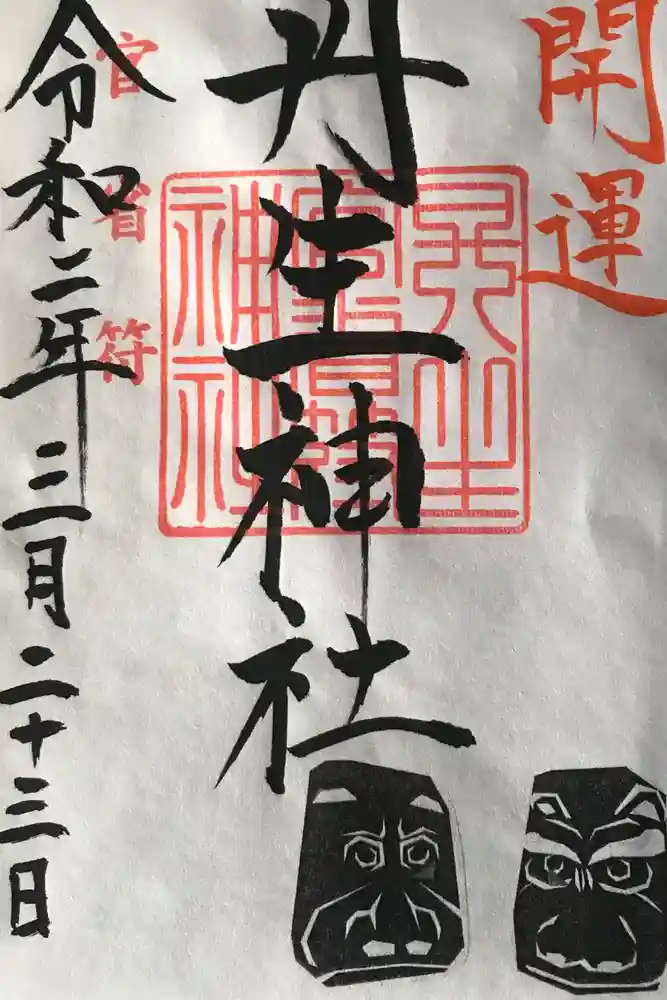 開運
丹生神社
官省符
令和二年三月二十三日